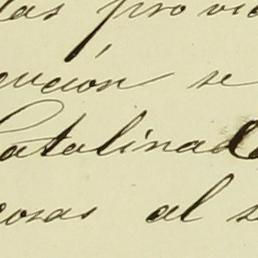 las provi
ución se
Catalina de
cosas al s